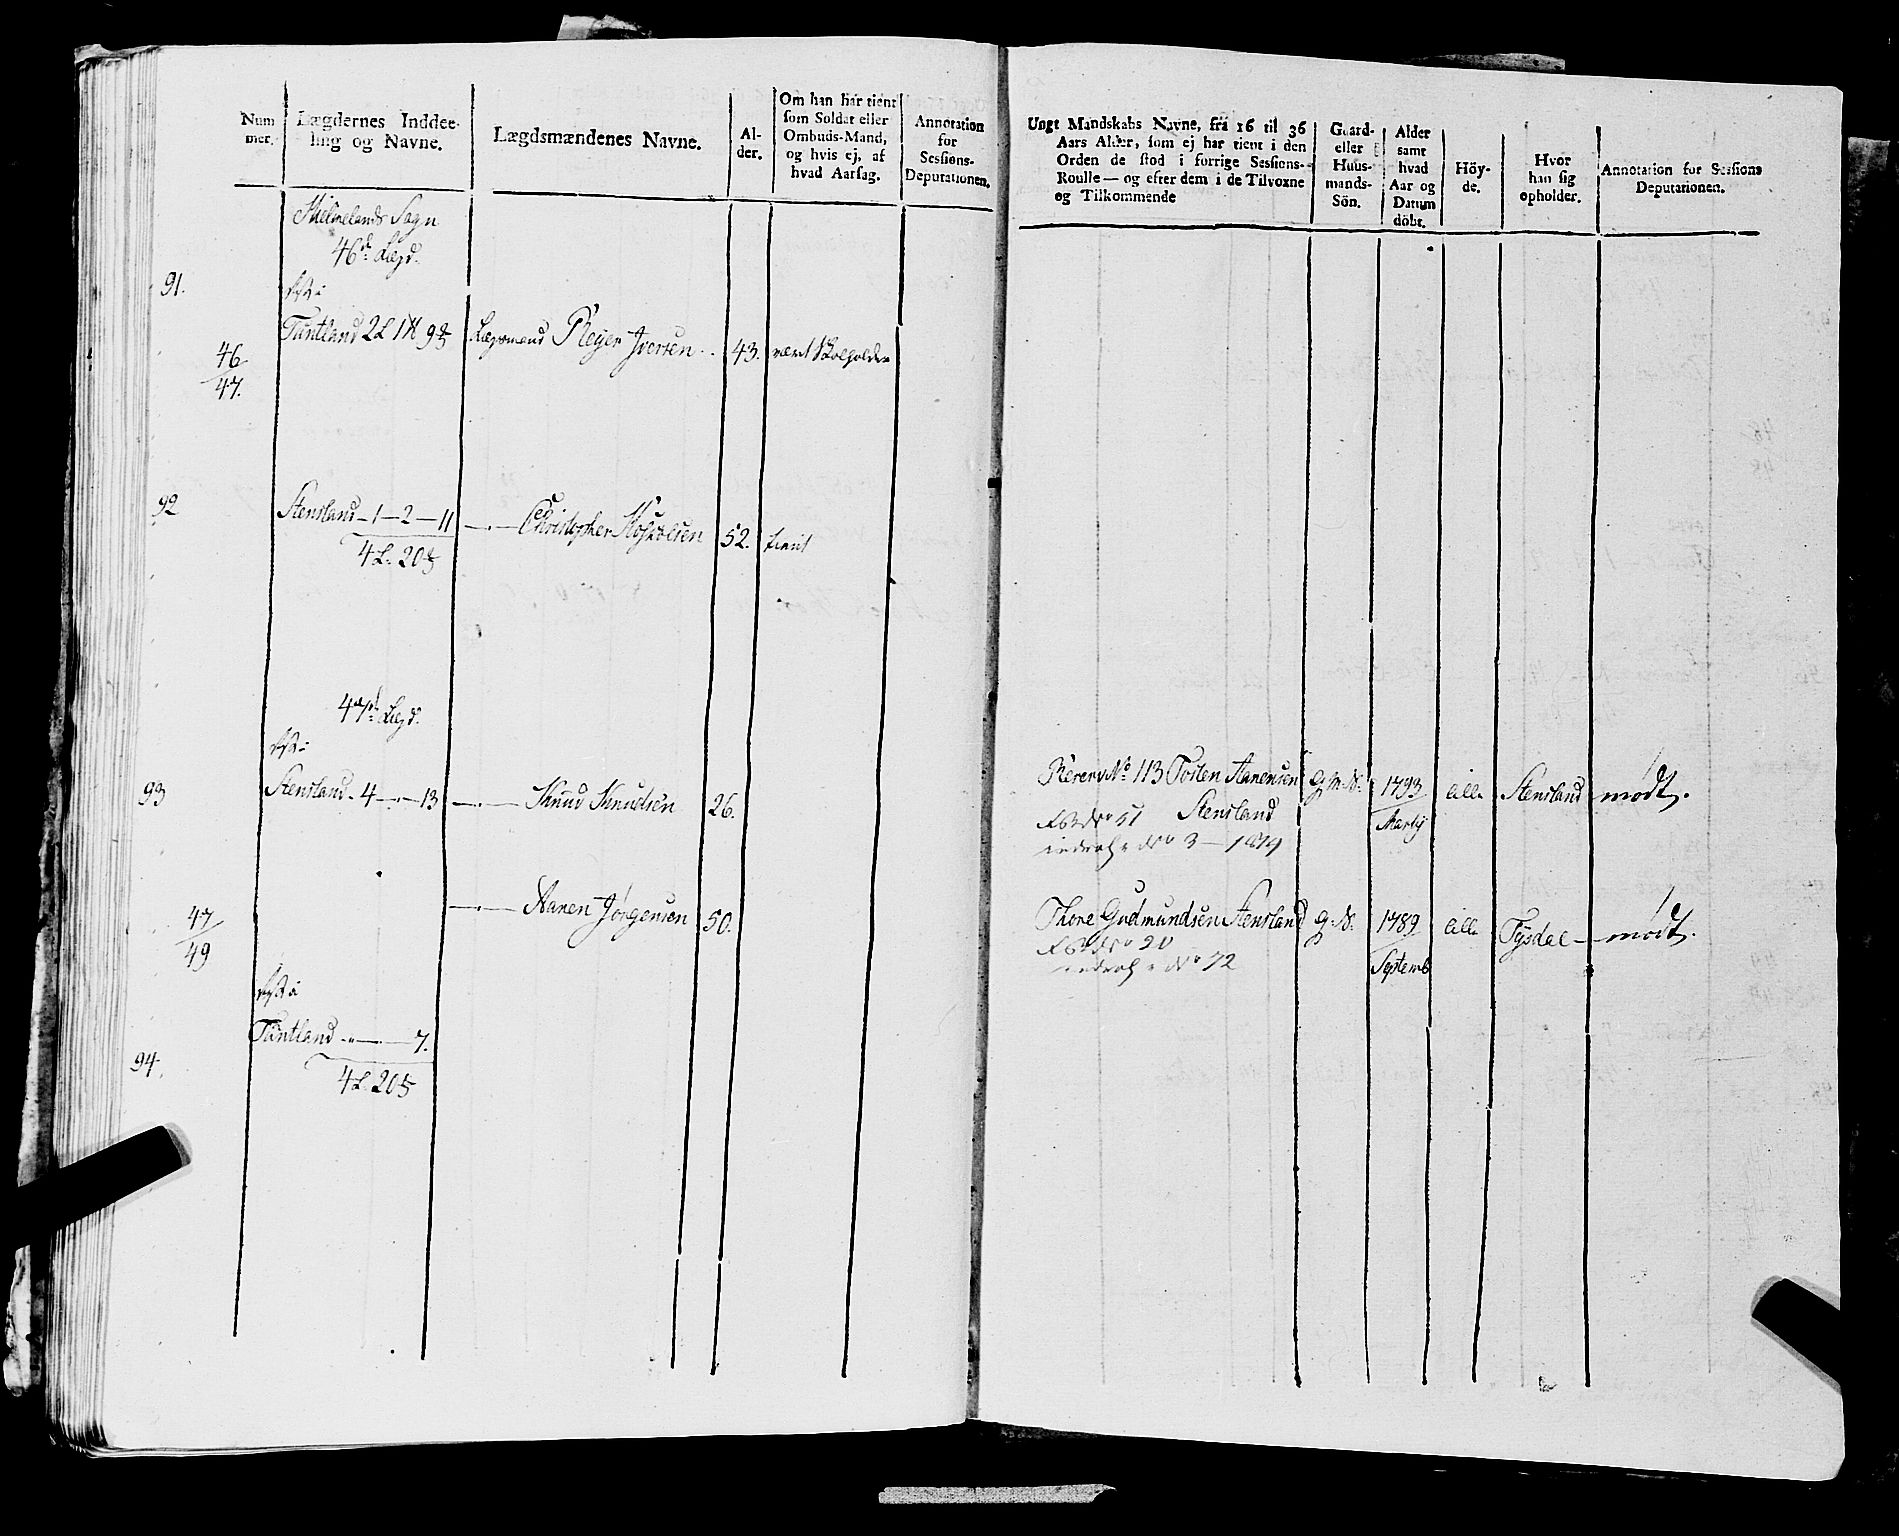 Num
mer.
Lægdernes Inddee-
ling og Navne.
Lægdsmændenes Navne.
Al-
der.
Om han har tient
som Soldat eller
Ombuds-Mand,
og hvis ej, af
hvad Aarsag.
Annotation
for
Sessions-
Deputationen.
Hielmelands Sogn
46d. Lægd.
91.
Tuntland 2 L 1 H 9
Lægsmand Reyer Iversen
43.
været Skoleholder
46
47.
92
Stensland - 1 - 2 - 11
Christopher
52.
tient
4 L. 20
47d. Lægd.
93
Stensland - 4 - " - 13
Knud Knudsen
26.
Aanen Jørgensen
50.
47
49
Tuntland - " - 7.
94.
4 L. 20
Ungt Mandskabs Navne, fra 16 til 36
Aars Alder, som ej har tient i den
Orden de stod i forrige Sessions-
Roulle — og efter dem i de Tilvoxne
og Tilkommende
Gaard-
eller
Huus-
mands-
Sön.
Alder
samt
hvad
Aar og
Datum
döbt.
Höy-
de.
Hvor
han sig
opholder.
Annotation for Sessions
Deputationen.
Reserv No 113 Tosten Aanensen
G. M. S.
1793
Stensland
mødt.
No 51 Stensland
Martij
No 3 - 1819
Thore Gudmundsen Stensland
G. S.
1789
Tysdal
mødt.
No 20
No 72
Septemb